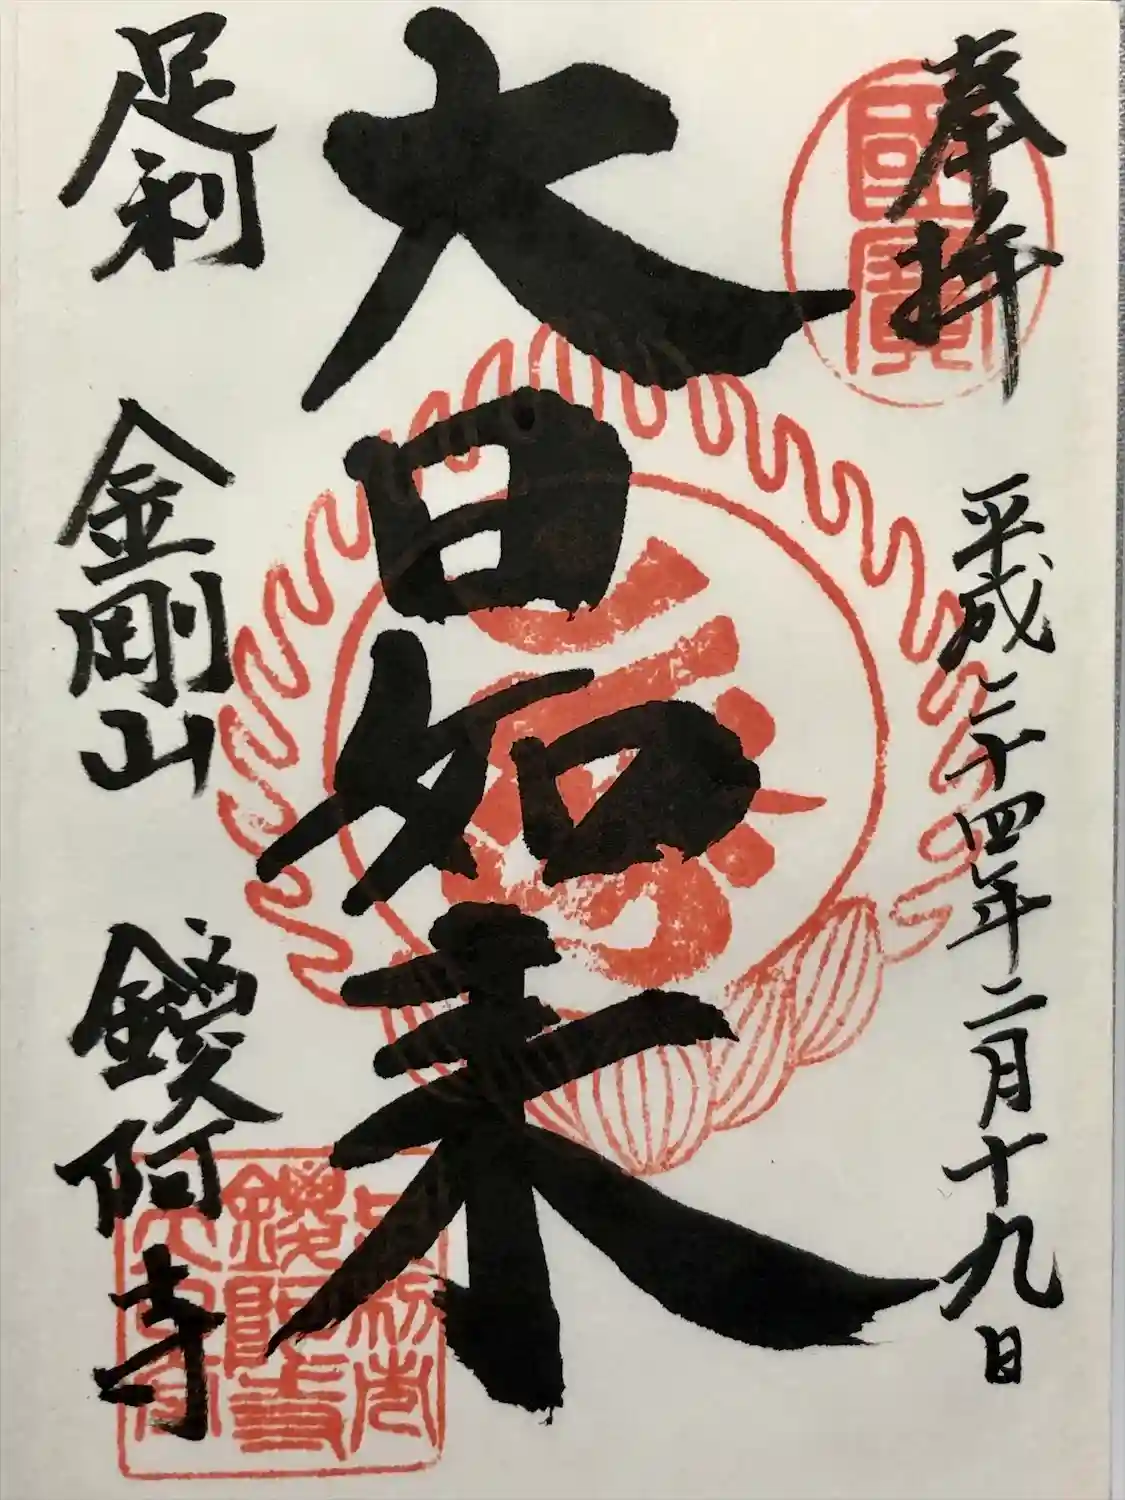 奉拝 平成二十四年二月十九日
國寶
大日如来
足利 金剛山 鑁阿寺
鑁阿寺